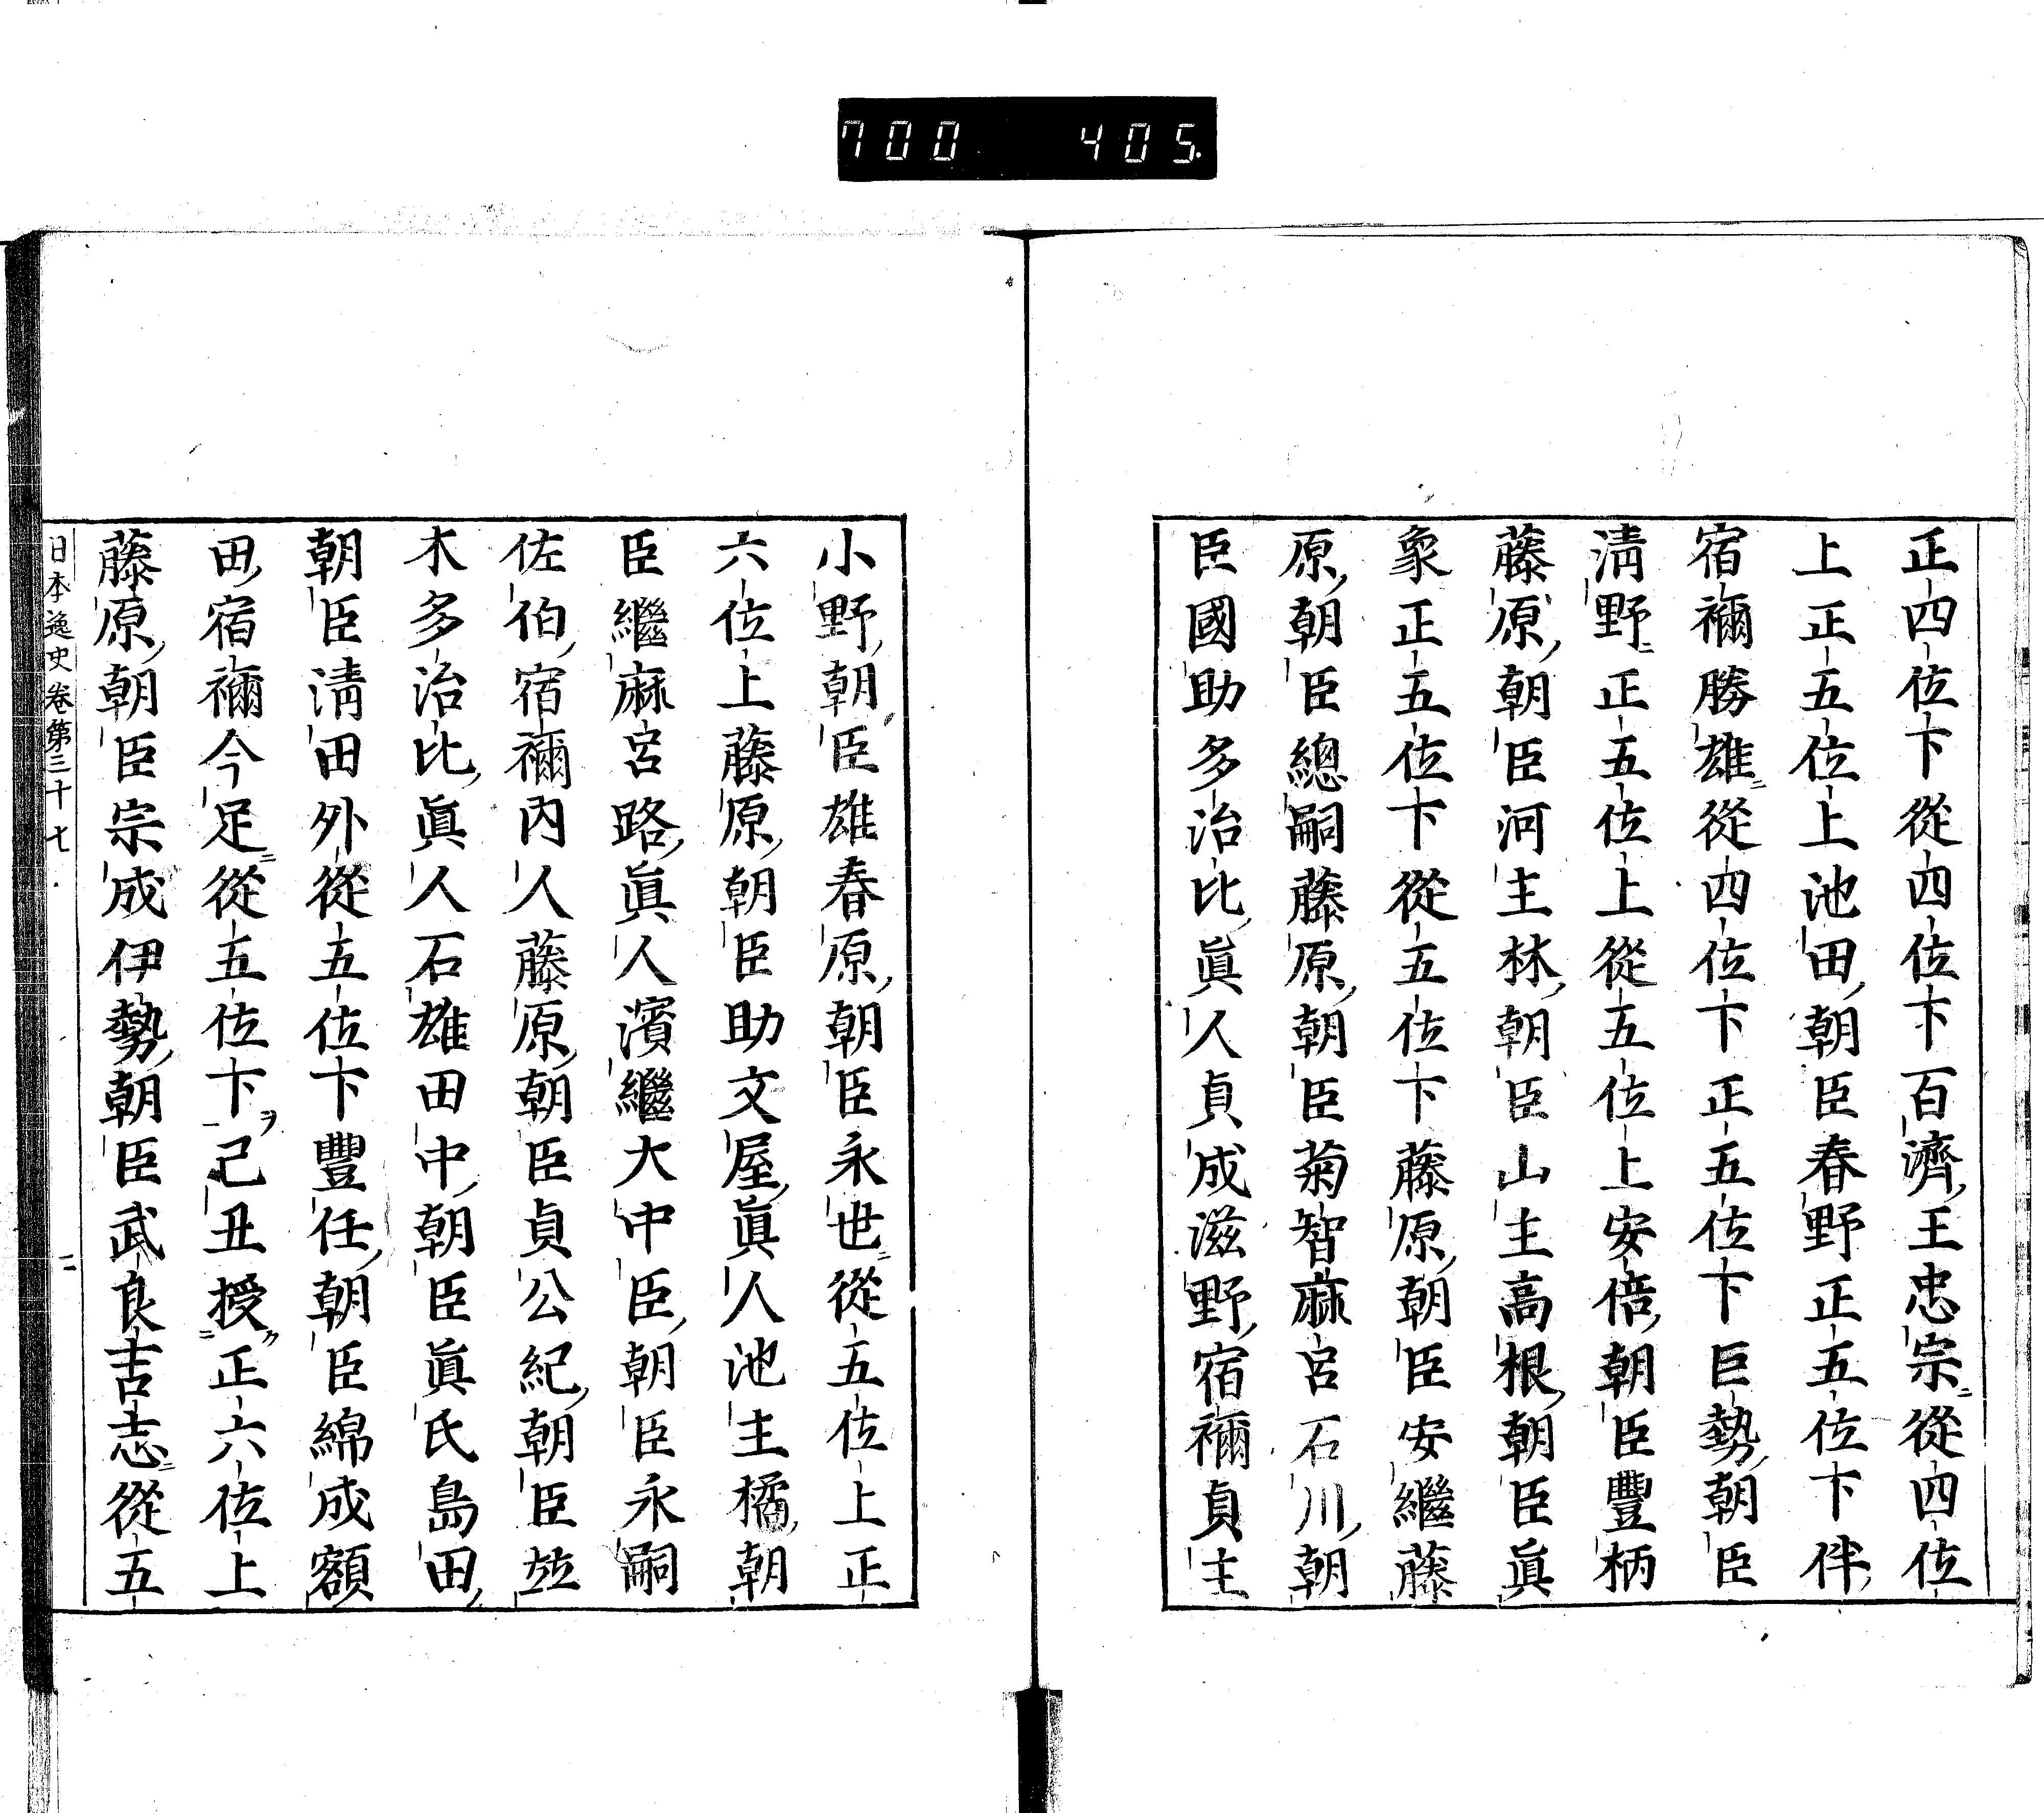 700 405.
正四位下從四位下百濟王忠宗從四位
上正五位上池田朝臣春野正五位下伴
宿禰勝雄從四位下正五位下巨勢朝臣
清野正五位上從五位上安倍朝臣豐柄
藤原朝臣河主林朝臣山主高根朝臣眞
象正五位下從五位下藤原朝臣安繼藤
原朝臣總嗣藤原朝臣菊智麻呂石川朝
臣國助多治比眞人貞成滋野宿禰貞主
小野朝臣雄春原朝臣永世從五位上正
六位上藤原朝臣助文屋眞人池主橘朝
臣繼麻呂路眞人濱繼大中臣朝臣永嗣
佐伯宿禰內人藤原朝臣貞公紀朝臣並
木多治比眞人石雄田中朝臣眞氏島田
朝臣清田外從五位下豐任朝臣綿成額
田宿禰今足從五位下ヲ己丑授正六位上
藤原朝臣宗成伊勢朝臣武良吉志從五
日本逸史 卷第三十七 二